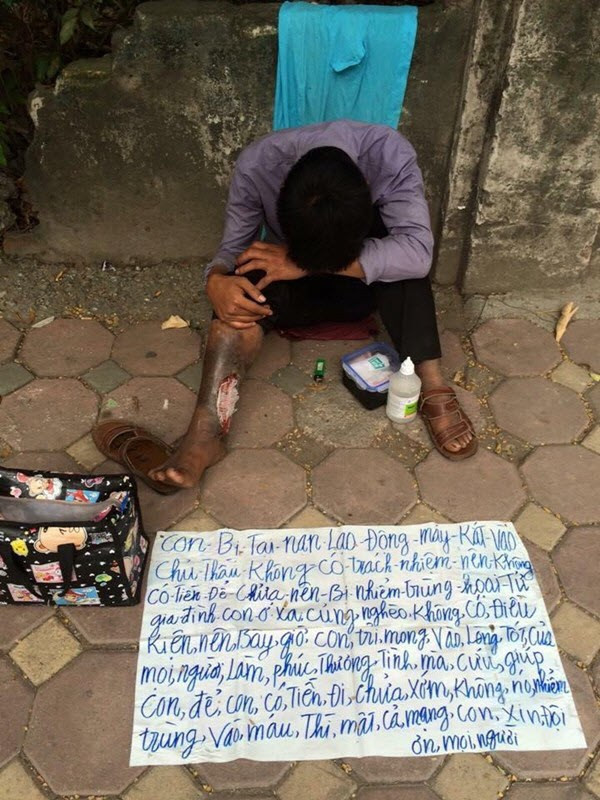 Con-Bị-Tai-nạn-Lao-Động-máy-Kắt-Vào
Chủ Thầu Không-Có-trách-nhiệm-nên-Không
Có-Tiền-Để-Chữa-nên-Bị-nhiễm-trùng-hoại-Tử
gia đình con ở xa, cũng, nghèo, Không, Có, Điều
Kiện, nên, Bay, giờ, con, trỉ, mong, Vào, Lòng, Tốt, Của
mọi, người, Làm, phúc, Thương, Tình, mà, cưu, giúp,
Con, để, con, có, Tiền, Đi, chữa, xớm, Không, nó, nhiễm
trùng, Vào, máu, Thì, mất, cả, mạng, con, xin, Đội
ơn, mọi, người